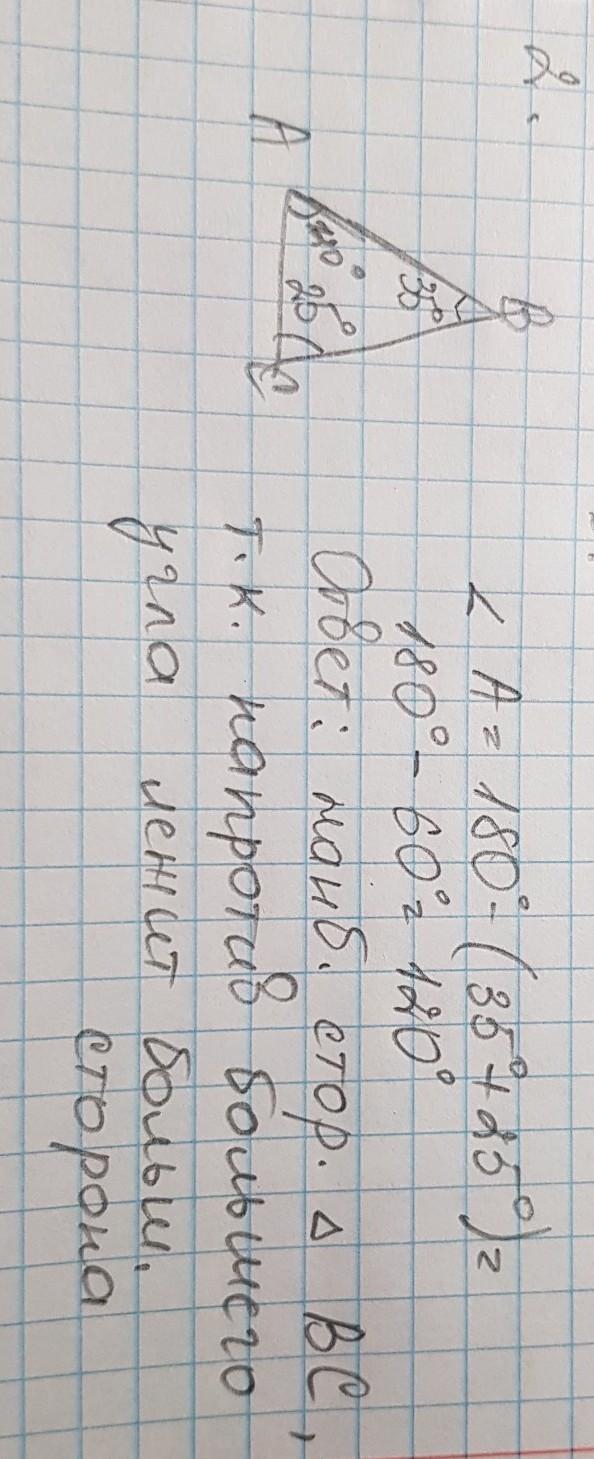 2.
B
35°
A
25°
C
∠ A = 180° - (35° + 25°) =
180° - 60° = 120°
Ответ: наиб. стор. △ BC,
т.к. напротив большего
угла лежит больш.
сторона